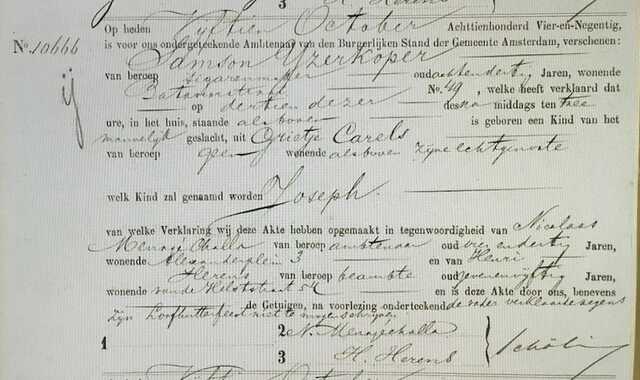 3 H. Herens
Op heden Vyftien October Achttienhonderd Vier-en-Negentig,
No. 10666 is voor ons ondergeteekende Ambtenaar van den Burgerlijken Stand der Gemeente Amsterdam, verschenen:
Samson Yzerkoper
van beroep Sigarenmaker oud achtendertig Jaren, wonende
Bataviastraat No. 49, welke heeft verklaard dat
op dertien dezer des na middags ten twee
ure, in het huis, staande als boven is geboren een Kind van het
mannelijk geslacht, uit Grietje Carels
van beroep geen wonende als boven zijne echtgenoote
welk Kind zal genaamd worden Joseph
van welke Verklaring wij deze Akte hebben opgemaakt in tegenwoordigheid van Nicolaas
Menagé Challa van beroep ambtenaar oud vier endertig Jaren,
wonende Alexanderplein 3 en van Henri
Herens van beroep beambte oud zevenenvijftig Jaren,
wonende van de Helststraat 54 en is deze Akte door ons, benevens
de Getuigen, na voorlezing onderteekend de vader verklaarde wegens
zijn Loofhuttenfeest niet te mogen schrijven
1 2 N. Menagé Challa
3 H. Herens